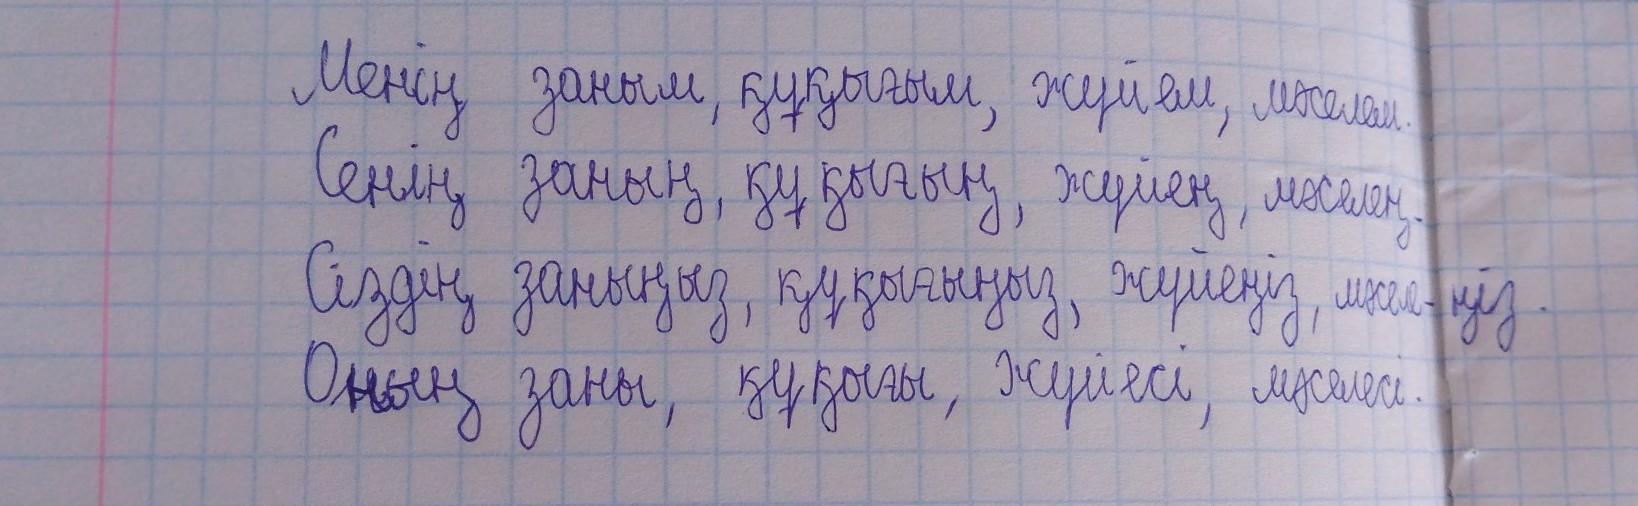 Менің заным, құқығым, жүйем, мәселем.
Сенің заның, құқығың, жүйең, мәселең.
Сіздің заныңыз, құқығыңыз, жүйеңіз, мәселе-ңіз.
Оның заны, құқығы, жүйесі, мәселесі.